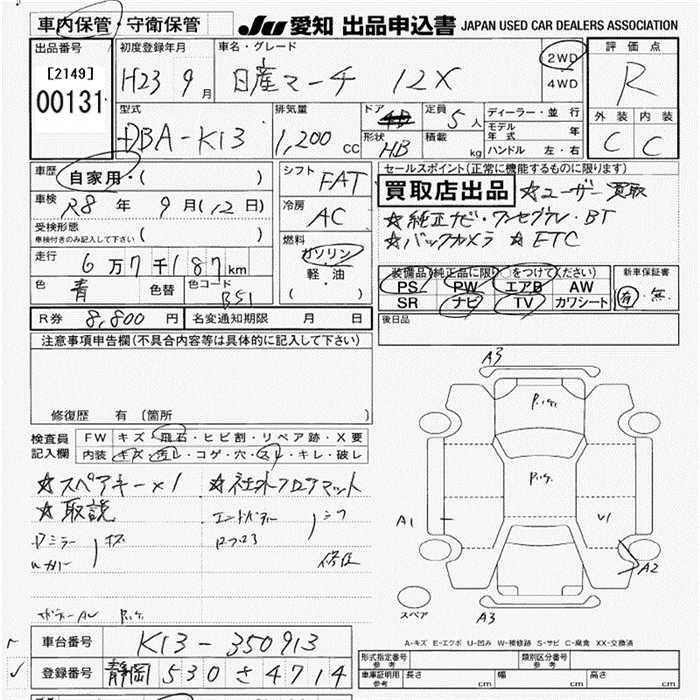 車内保管・守衛保管
JU 愛知 出品申込書 JAPAN USED CAR DEALERS ASSOCIATION
出品番号 [2149] 00131
初度登録年月 H23 9月
車名・グレード 日産マーチ 12X
2WD
4WD
評価点 R
外装 内装
C C
型式 DBA-K13
排気量 1,200 cc
ドア 4D
形状 HB
定員 5人
積載 kg
ディーラー・並行
モデル年式 年
ハンドル 左・右
車歴 自家用・( )
車検 R8年 9月(12日)
受検形態
車検付きのみ記入して下さい ( )
走行 6万7千187km
色 青 色替 色コード B51
シフト FAT
冷房 AC
燃料 ガソリン・軽油
( )
セールスポイント(正常に機能するものに限ります)
買取店出品 ☆ユーザー買取
☆純正ナビ・ワンセグTV・BT
☆バックカメラ ☆ETC
装備品(純正品に限り○をつけてください)
PS PW エアB AW
SR ナビ TV カワシート
新車保証書
有・無
R券 8,800円 名変通知期限 月 日
後日品
注意事項申告欄(不具合内容等は具体的に記入して下さい)
修復歴 有(箇所
検査員記入欄
FW キズ・飛石・ヒビ割・リペア跡・X要
内装 キズ・汚レ・コゲ・穴・スレ・キレ・破レ
☆スペアキー×1 ☆社外フロアマット
☆取説
Dミラー
キズ
修正
P.ig.
A3
P.ig.
P.ig.
A1
U1
A2
A3
スペア
A-キズ E-エクボ U-凹み W-補修跡 S-サビ C-腐食 XX-交換済
車台番号 K13-350913
登録番号 静岡 530 さ 4714
形式指定番号 参考
類別区分番号 参考
車庫証明用 参考 長さ cm 幅 cm 高さ cm